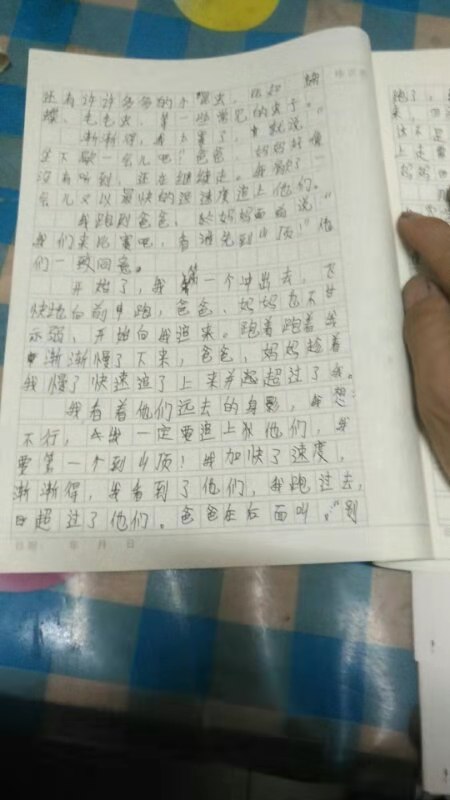 还有许许多多的小昆虫，比如 蝴
蝶、毛毛虫，等一些常见的虫子。
渐渐得，我卜累了，就说：“
坐下歇一会儿吧？爸爸，妈妈好像
没有听到，还在继续走。我歇了一
会儿又以最快的速度追上他们。
我跑到爸爸、妈妈面前说“
我们来比赛吧，看谁先到山顶！”他
们一致同意。
开始了，我第一个冲出去，飞
快地向前跑，爸爸，妈妈也不甘
示弱，开始向我追来。跑着跑着我
渐渐慢了下来，爸爸，妈妈趁着
我慢了快速追了上来并超过了我。
我看着他们远去的身影，我想：
不行，我一定要追上他们，我
要第一个到山顶！我加快了速度，
渐渐得，我看到了他们，我跑过去，
超过了他们。爸爸在后面叫，“别
日期： 年 月 日
跑了，
来，
这不是
上走
妈妈